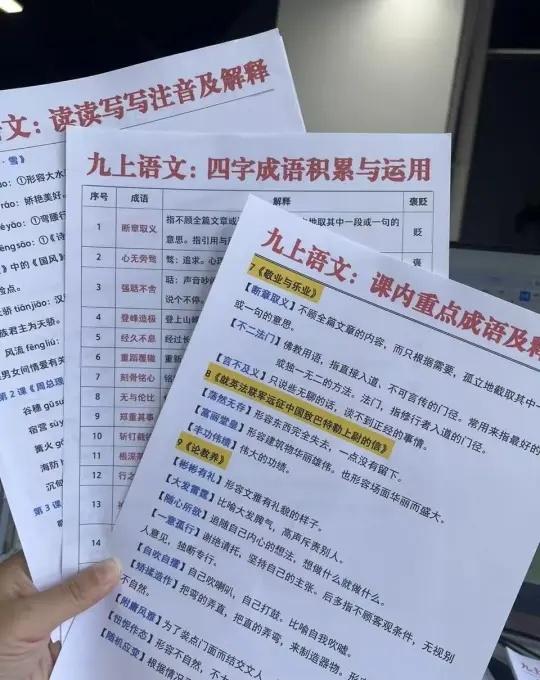 文：读读写写注音及解释
·雪》
①形容大水
娇艳美好。
①弯腰行
①《诗
》中的《国风》
天骄 tiānjiāo：汉
族君主为天骄。
风流 fēngliú：
男女间情爱有关
第 2 课《周总理
谷穗 gǔsu
宿营 sùy
篝火 gō
海防
沉甸
第 3 课
九上语文：四字成语积累与运用
序号 成语 解释 褒贬
1 断章取义 指不顾全篇文章或 地取其中一段或一句的 贬
意思。指引用与
2 心无旁骛 骛：追求。心 褒
3 强聒不舍 聒：声音吵
说个不停。
4 登峰造极 登上山峰
5 经久不息 经过长
6 重蹈覆辙 重新
7 刻骨铭心 比
8 无与伦比
9 郑重其事
10 斩钉截铁
11 根深
12 行之
13
14
九上语文：课内重点成语及释
7《敬业与乐业》
【断章取义】不顾全篇文章的内容，而只根据需要，孤立地截取其中一
或一句的意思。
【不二法门】佛教用语，指直接入道、不可言传的门径。常用来指最好的
或独一无二的方法。法门，指修行者入道的门径。
【言不及义】只说些无聊的话，谈不到正经的事情。
8《就英法联军远征中国致巴特勒上尉的信》
【荡然无存】形容东西完全失去，一点没有留下。
【富丽堂皇】形容建筑物华丽雄伟。也形容场面华丽而盛大。
【丰功伟绩】伟大的功绩。
9《论教养》
【彬彬有礼】形容文雅有礼貌的样子。
【大发雷霆】比喻大发脾气，高声斥责别人。
【随心所欲】追随自己内心的想法，想做什么就做什么。
【一意孤行】谢绝请托，坚持自己的主张。后多指不顾客观条件，无视别
人意见，独断专行。
【自吹自擂】自己吹喇叭，自己打鼓。比喻自我吹嘘。
【矫揉造作】把弯的弄直，把直的弄弯，来制造器物。形
不自然。
【附庸风雅】为了装点门面而结交文人
【忸怩作态】形容不自然，不大
【随机应变】根据情况
九上